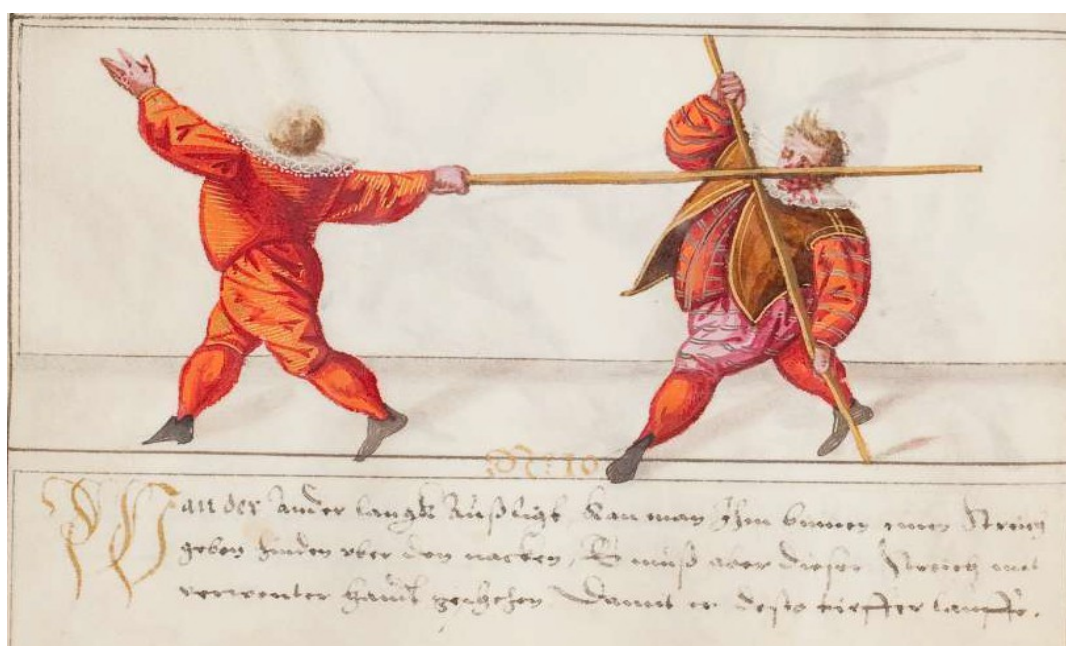 Wan der Ander langk Außligt, Kan man Ihm binnen einen Streich
geben hinden vber den nacken, Es muß aber dieser Streich mit
verwenter handt geschehen Damit er desto tieffer lauffe.